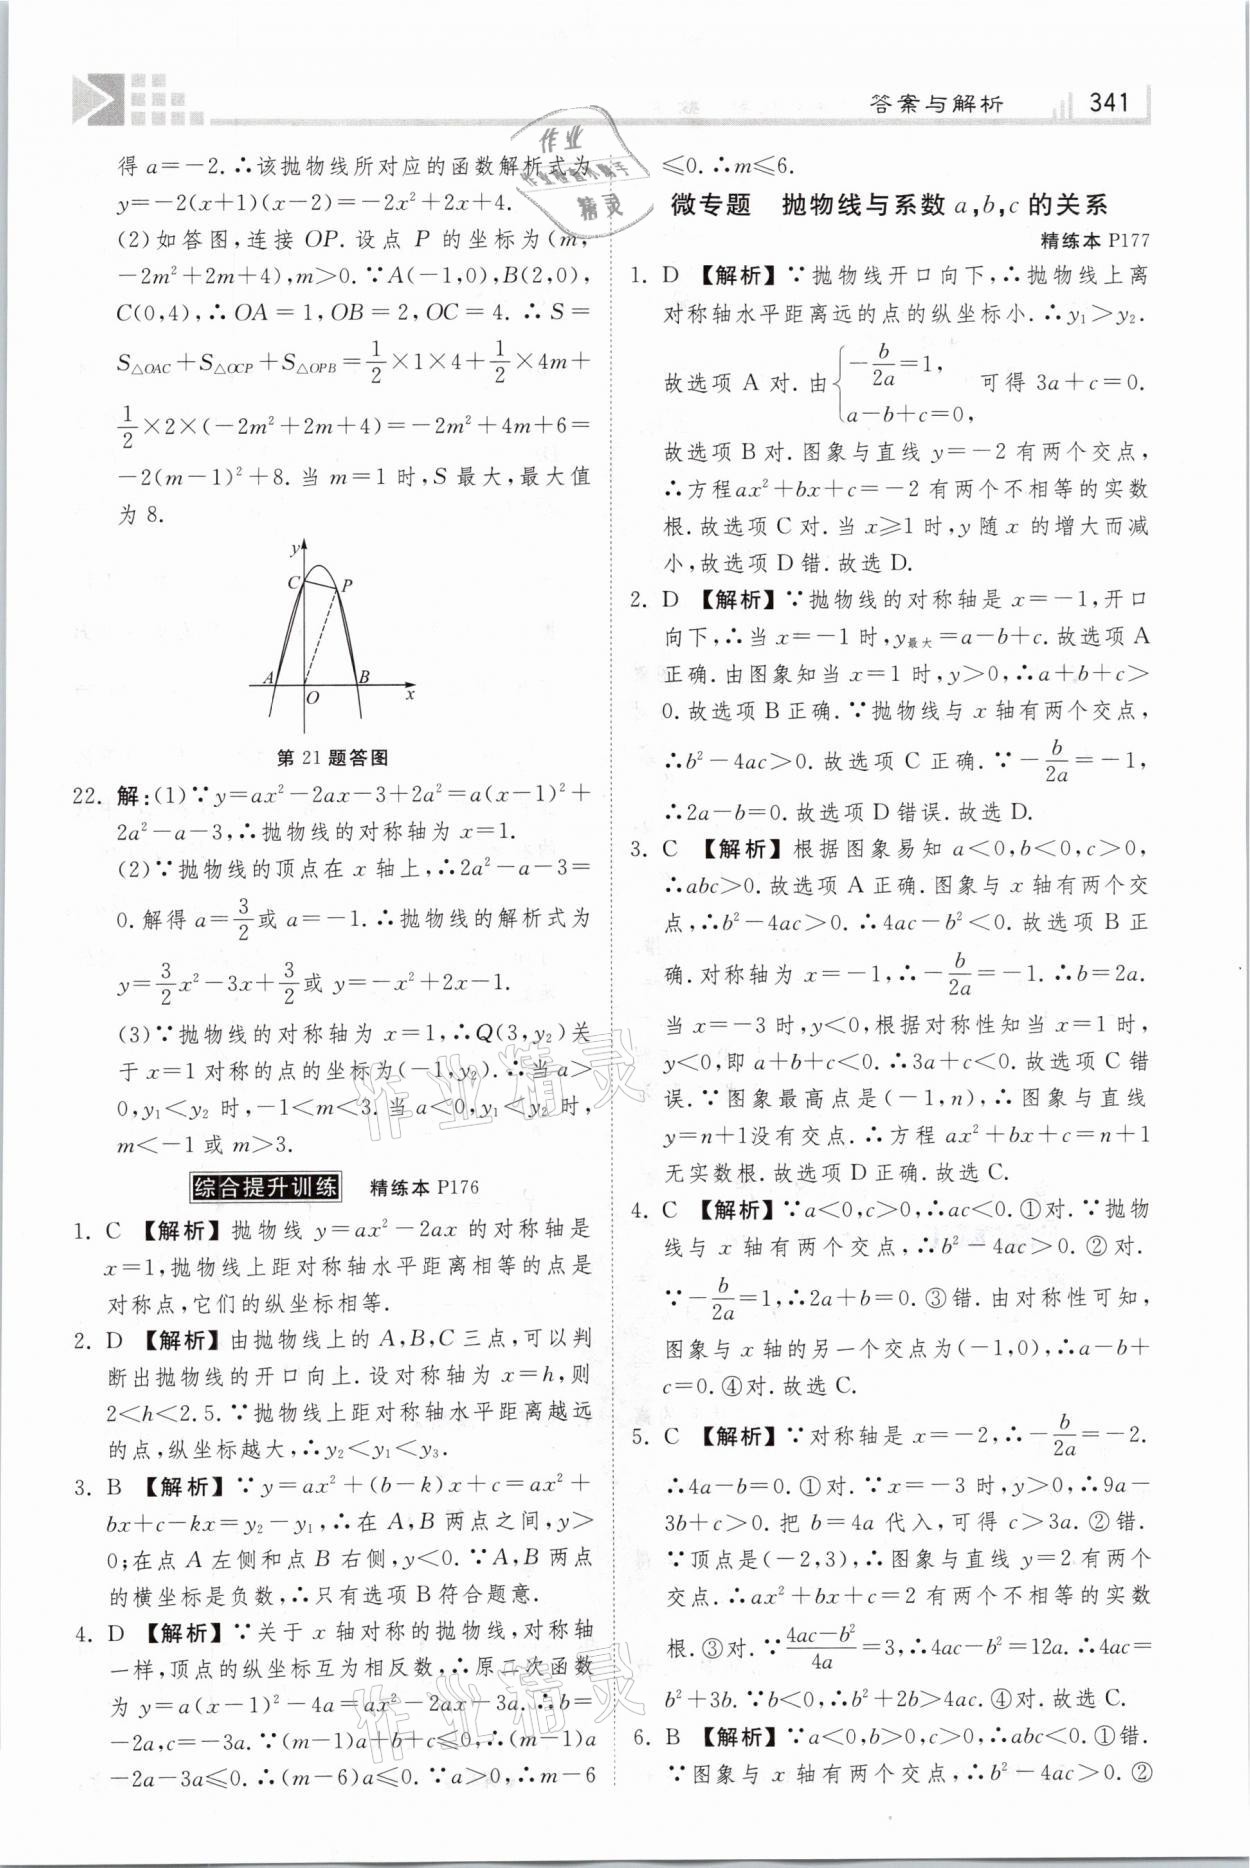 答案与解析 341
得 a=-2. ∴该抛物线所对应的函数解析式为
y=-2(x+1)(x-2)=-2x²+2x+4.
(2)如答图,连接 OP. 设点 P 的坐标为(m,
-2m²+2m+4),m>0. ∵A(-1,0),B(2,0),
C(0,4),∴OA=1,OB=2,OC=4. ∴S=
S△OAC+S△OCP+S△OPB=1/2×1×4+1/2×4m+
1/2×2×(-2m²+2m+4)=-2m²+4m+6=
-2(m-1)²+8. 当 m=1 时,S 最大,最大值
为 8.
y
C
P
A
B
O
x
第 21 题答图
22. 解:(1)∵y=ax²-2ax-3+2a²=a(x-1)²+
2a²-a-3,∴抛物线的对称轴为 x=1.
(2)∵抛物线的顶点在 x 轴上,∴2a²-a-3=
0. 解得 a=3/2或 a=-1. ∴抛物线的解析式为
y=3/2x²-3x+3/2或 y=-x²+2x-1.
(3)∵抛物线的对称轴为 x=1,∴Q(3,y₂)关
于 x=1 对称的点的坐标为(-1,y₂). ∴当 a>
0,y₁<y₂ 时,-1<m<3. 当 a<0,y₁<y₂ 时,
m<-1 或 m>3.
综合提升训练 精练本 P176
1. C 【解析】抛物线 y=ax²-2ax 的对称轴是
x=1,抛物线上距对称轴水平距离相等的点是
对称点,它们的纵坐标相等.
2. D 【解析】由抛物线上的 A,B,C 三点,可以判
断出抛物线的开口向上. 设对称轴为 x=h,则
2<h<2.5. ∵抛物线上距对称轴水平距离越远
的点,纵坐标越大,∴y₂<y₁<y₃.
3. B 【解析】∵y=ax²+(b-k)x+c=ax²+
bx+c-kx=y₂-y₁,∴在 A,B 两点之间,y>
0;在点 A 左侧和点 B 右侧,y<0. ∵A,B 两点
的横坐标是负数,∴只有选项 B 符合题意.
4. D 【解析】∵关于 x 轴对称的抛物线,对称轴
一样,顶点的纵坐标互为相反数,∴原二次函数
为 y=a(x-1)²-4a=ax²-2ax-3a. ∴b=
-2a,c=-3a. ∵(m-1)a+b+c≤0,∴(m-1)a
-2a-3a≤0. ∴(m-6)a≤0. ∵a>0,∴m-6
≤0. ∴m≤6.
微专题 抛物线与系数 a,b,c 的关系
精练本 P177
1. D 【解析】∵抛物线开口向下,∴抛物线上离
对称轴水平距离远的点的纵坐标小. ∴y₁>y₂.
故选项 A 对. 由{-b/2a=1, a-b+c=0, 可得 3a+c=0.
故选项 B 对. 图象与直线 y=-2 有两个交点,
∴方程ax²+bx+c=-2 有两个不相等的实数
根. 故选项 C 对. 当 x≥1 时,y 随 x 的增大而减
小,故选项 D 错. 故选 D.
2. D 【解析】∵抛物线的对称轴是 x=-1,开口
向下,∴当 x=-1 时,y最大=a-b+c. 故选项 A
正确. 由图象知当 x=1 时,y>0,∴a+b+c>
0. 故选项 B 正确. ∵抛物线与 x 轴有两个交点,
∴b²-4ac>0. 故选项 C 正确. ∵-b/2a=-1,
∴2a-b=0. 故选项 D 错误. 故选 D.
3. C 【解析】根据图象易知 a<0,b<0,c>0,
∴abc>0. 故选项 A 正确. 图象与 x 轴有两个交
点,∴b²-4ac>0. ∴4ac-b²<0. 故选项 B 正
确. 对称轴为 x=-1,∴-b/2a=-1. ∴b=2a.
当 x=-3 时,y<0,根据对称性知当 x=1 时,
y<0,即 a+b+c<0. ∴3a+c<0. 故选项 C 错
误. ∵图象最高点是(-1,n),∴图象与直线
y=n+1没有交点. ∴方程 ax²+bx+c=n+1
无实数根. 故选项 D 正确. 故选 C.
4. C 【解析】∵a<0,c>0,∴ac<0. ①对. ∵抛物
线与 x 轴有两个交点,∴b²-4ac>0. ②对.
∵-b/2a=1,∴2a+b=0. ③错. 由对称性可知,
图象与 x 轴的另一个交点为(-1,0),∴a-b+
c=0. ④对. 故选 C.
5. C 【解析】∵对称轴是 x=-2,∴-b/2a=-2.
∴4a-b=0. ①对. ∵x=-3 时,y>0,∴9a-
3b+c>0. 把 b=4a 代入,可得 c>3a. ②错.
∵顶点是(-2,3),∴图象与直线 y=2 有两个
交点. ∴ax²+bx+c=2 有两个不相等的实数
根. ③对. ∵(4ac-b²)/4a=3,∴4ac-b²=12a. ∴4ac=
b²+3b. ∵b<0,∴b²+2b>4ac. ④对. 故选 C.
6. B 【解析】∵a<0,b>0,c>0,∴abc<0. ①错.
∵图象与 x 轴有两个交点,∴b²-4ac>0. ②
作业精灵
作业精灵